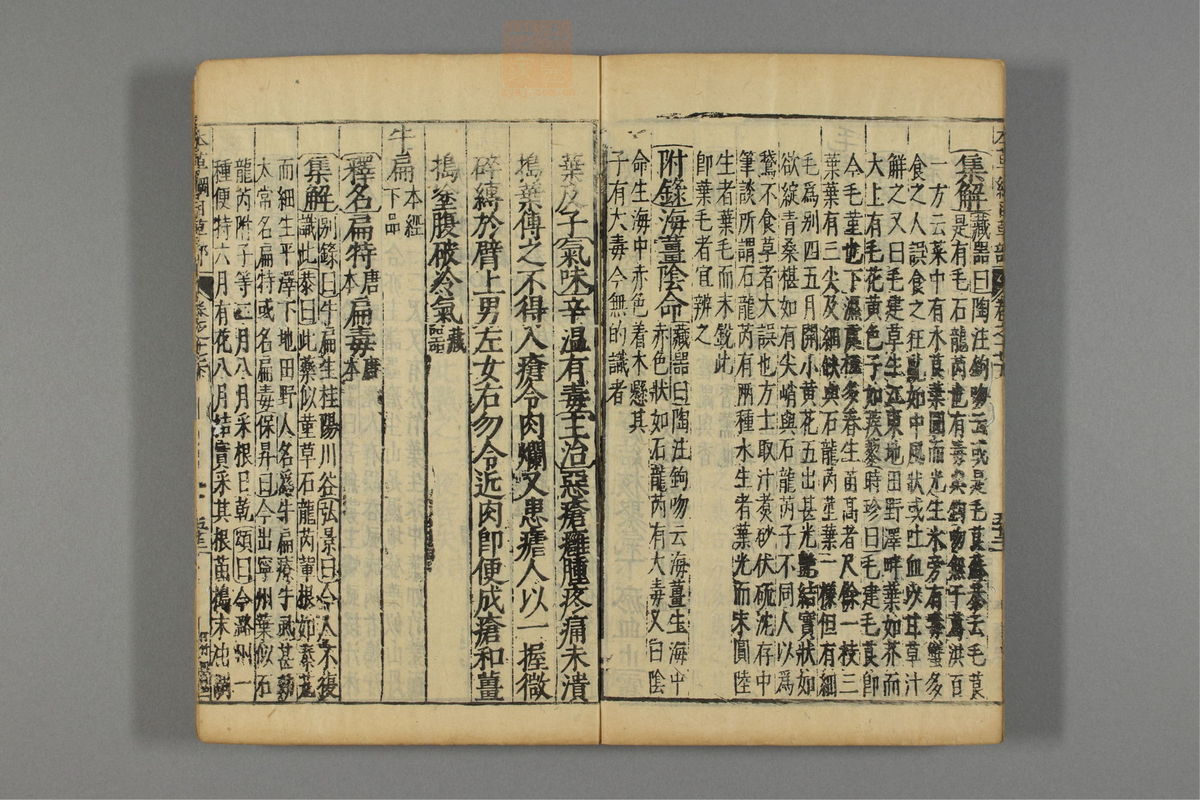 集解藏器曰陶注鉤吻云或是毛茛蘇恭云毛茛
是有毛石龍芮也有毒與鉤吻無干葛洪百
一方云菜中有水茛葉圓而光生水旁有毒蟹多
食之人誤食之狂亂如中風狀或吐血以甘草汁
解之又曰毛建草生江東地田野澤畔葉如芥而
大上有毛花黃色子如蒺藜時珍曰毛建毛茛即
今毛堇也下濕處極多春生苗高者尺餘一枝三
葉葉有三尖及細缺與石龍芮莖葉一樣但有細
毛為別四五月開小黃花五出甚光艷結實狀如
欲綻青桑椹如有尖峭與石龍芮子不同人以為
鵞不食草者大誤也方士取汁煑砂伏硫沈存中
筆談所謂石龍芮有兩種水生者葉光而末圓陸
生者葉毛而末銳此
即葉毛者宜辨之
附錄海薑陰命藏器曰陶注鉤吻云海薑生海中
赤色狀如石龍芮有大毒又曰陰
命生海中赤色着木懸其
子有大毒今無的識者
葉及子氣味辛溫有毒主治惡瘡癰腫疼痛未潰
搗葉傅之不得入瘡令肉爛又患瘧人以一握微
碎縛於臂上男左女右勿令近肉即便成瘡和薑
搗塗腹破冷氣藏器
牛扁本經下品
釋名扁特唐本扁毒唐本
集解别錄曰牛扁生桂陽川谷弘景曰今人不復
識此恭曰此藥似堇草石龍芮輩根如秦艽
而細生平澤下地田野人名為牛扁療牛虱甚効
太常名扁特或名扁毒保昇曰今出寧州葉似石
龍芮附子等二月八月采根日乾頌曰今潞州一
種便特六月有花八月結實采其根苗搗末油調